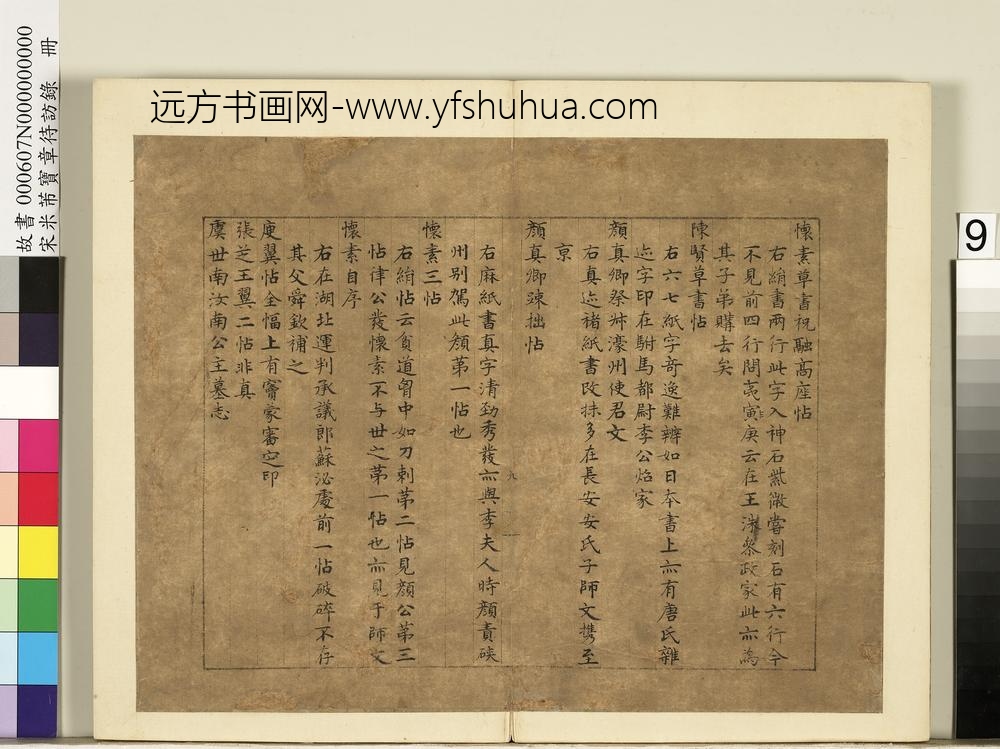 故書 000607N000000000
宋米芾寶章待訪錄 冊
远方书画网-www.yfshuhua.com
9
懷素草書祝融高座帖
右絹書兩行此字入神石紫微嘗刻石有六行今
不見前四行問夷庚云在王洙參政家此亦為
其子弟購去矣
陳賢草書帖
右六七紙字奇逸難辨如日本書上亦有唐氏雜
迹字印在駙馬都尉李公炤家
顏真卿祭叔濠州使君文
右真迹楮紙書改抹多在長安安氏子師文攜至
京
顏真卿疎拙帖
右麻紙書真字清勁秀發亦與李夫人時顏責硤
州别駕此顏第一帖也
九
懷素三帖
右絹帖云貧道胷中如刀刺第二帖見顏公第三
帖律公發懷素不与世之第一帖也亦見于師文
懷素自序
右在湖北運判承議郎蘇泌處前一帖破碎不存
其父舜欽補之
庾翼帖全幅上有竇蒙審定印
張芝王翼二帖非真
虞世南汝南公主墓志